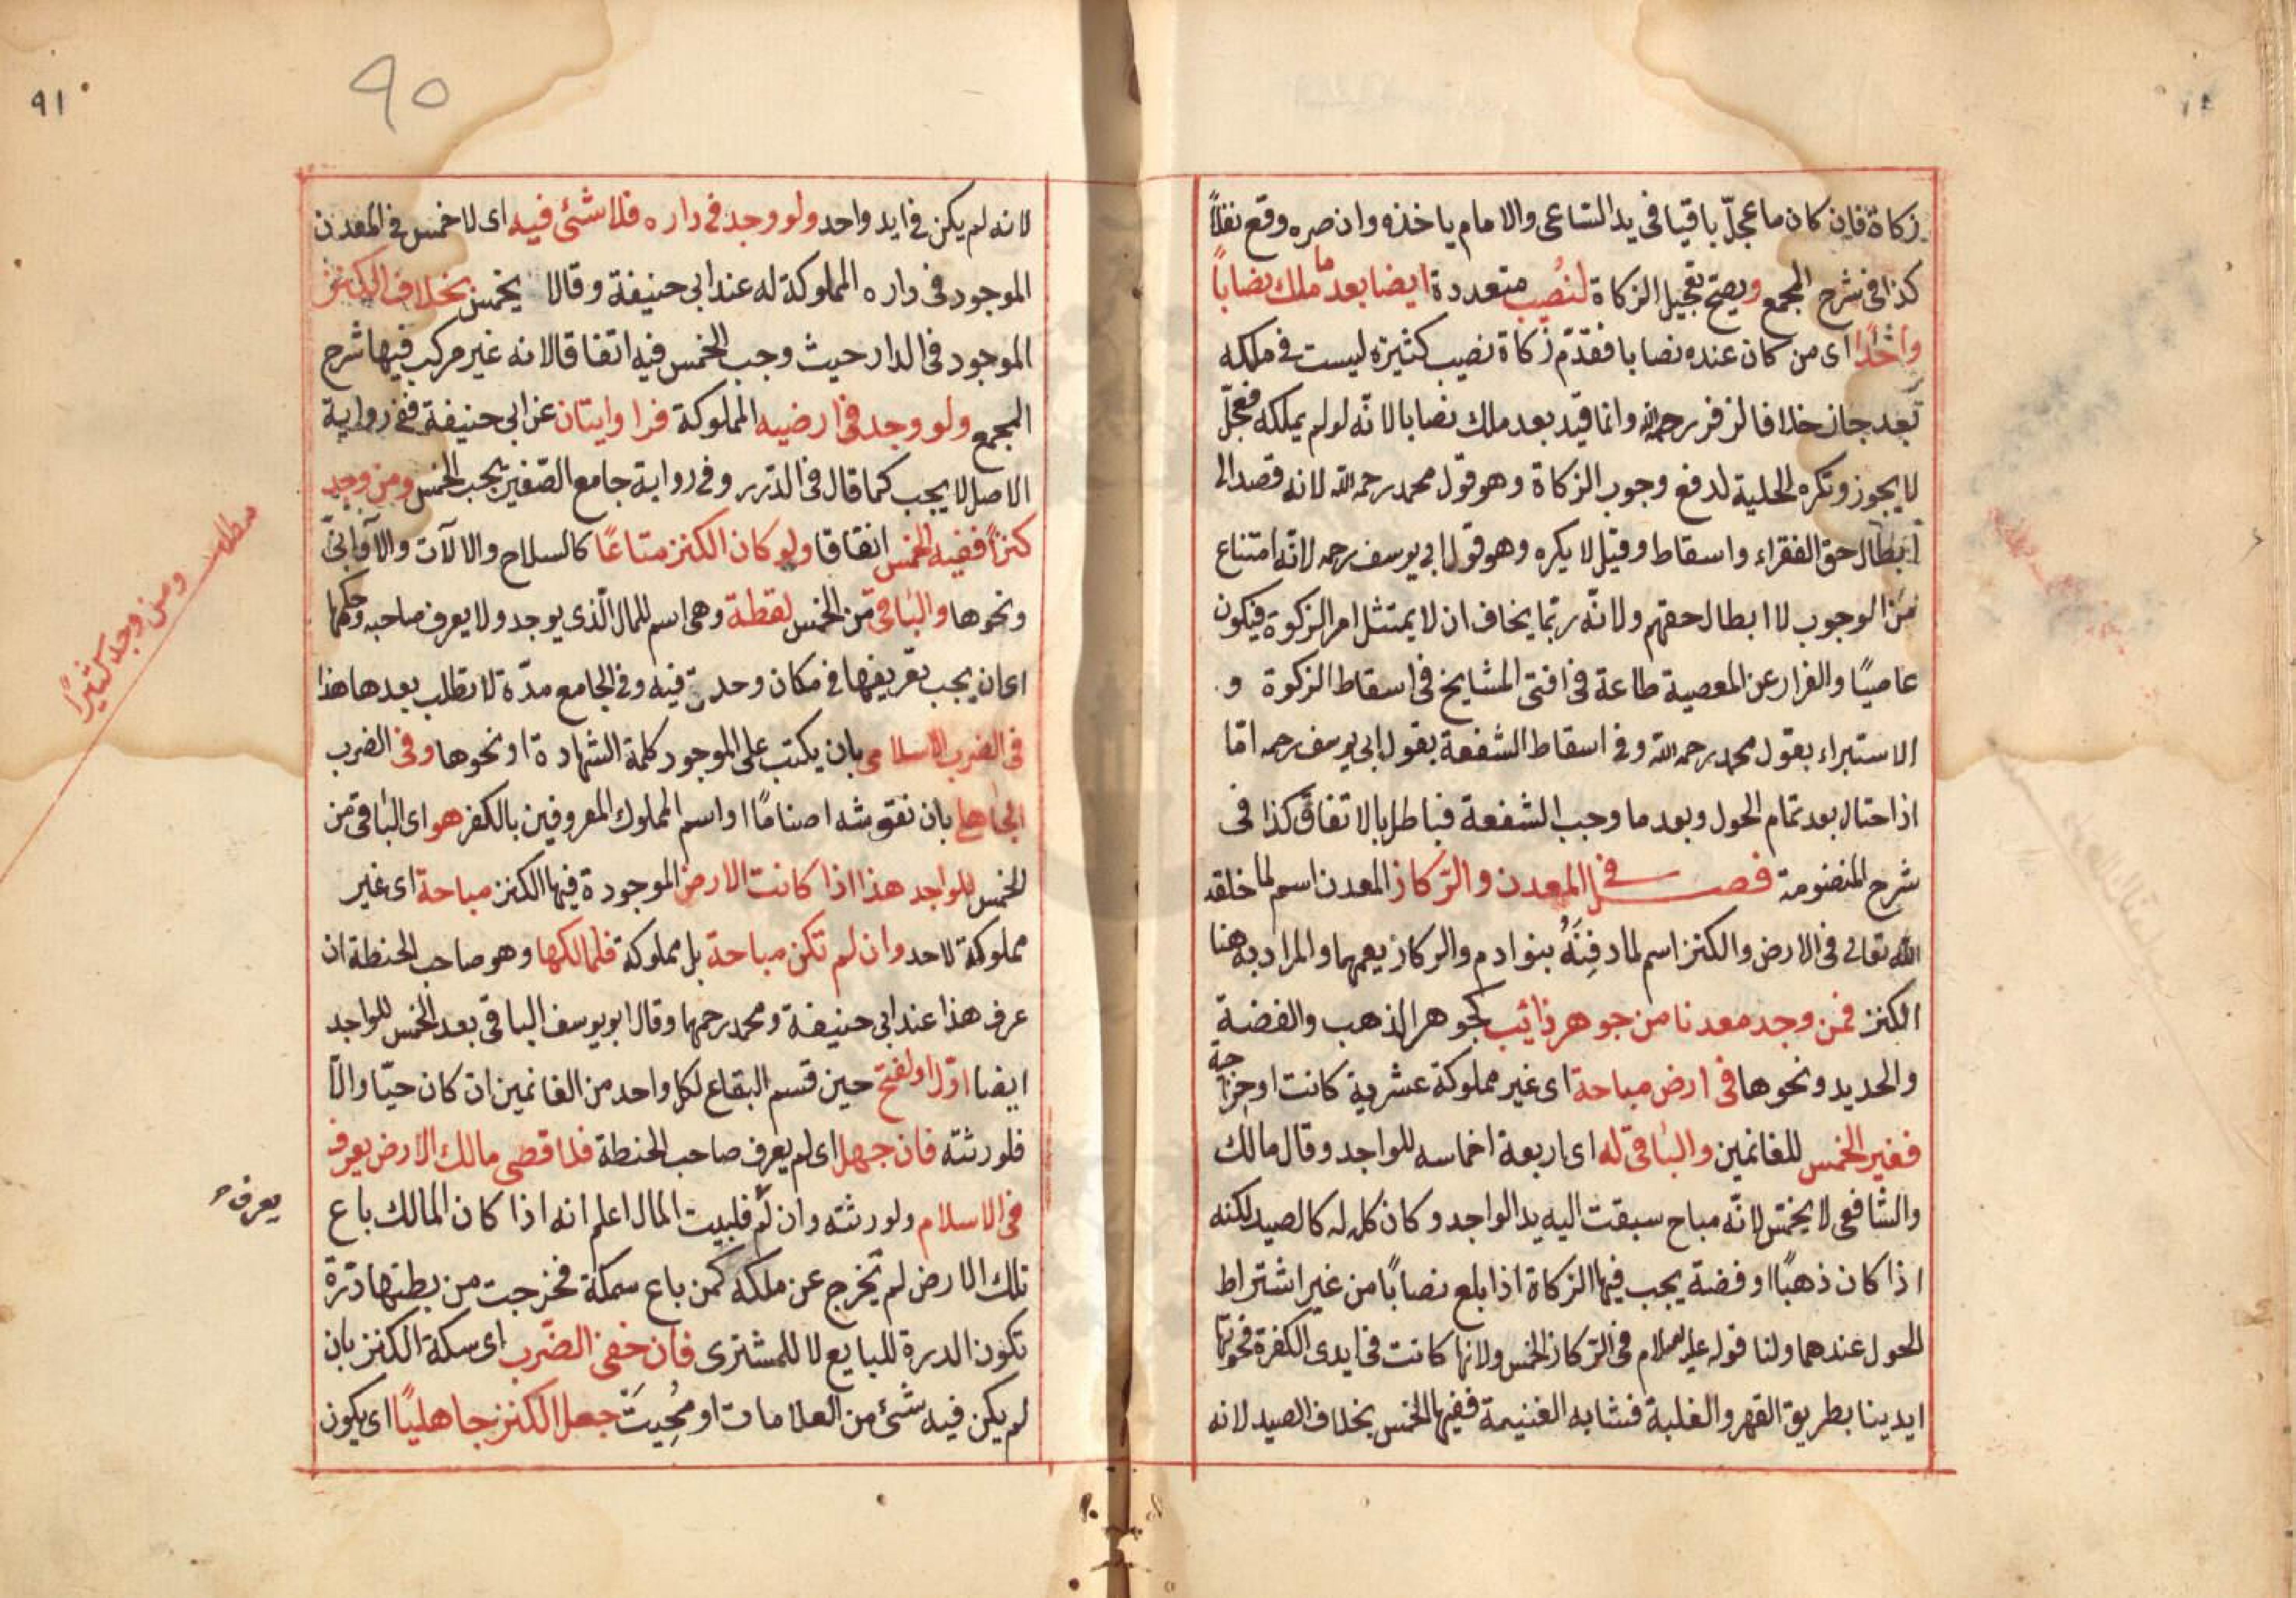 زكاة فان كان ما عجل باقيا فى يد الساعى والامام ياخذه وان صره وقع نفلاً
كذا فى شرح المجمع ويصح تعجيل الزكاة لنُصُب متعددة ايضا بعد ما ملك نصاباً
واحدًا اى من كان عنده نصابا فقدّم زكاة نصيب كثيرة ليست فى ملكه
بعد جاز خلافا لزفر رحمه الله وانما قيد بعد ملك نصابا لانّه لو لم يملكه فعجلّ
لا يجوز وتكره الحلية لدفع وجوب الزكاة وهو قول محمد رحمه الله لانه قصد الى
ابطال حق الفقراء واسقاط وقيل لا يكره وهو قول ابى يوسف رحمه لانّه امتناع
من الوجوب لا ابطال حقهم ولانّه ربّما يخاف ان لا يمتثل امر الزكوة فيكون
عاصيًا والفرار عن المعصية طاعة فى افتى المشايخ فى اسقاط الزكوة و
الاستبراء بقول محمد رحمه الله وفى اسقاط الشفعة بقول ابى يوسف رحمه امّا
اذا حتال بعد تمام الحول وبعد ما وجب الشفعة فباطل بالاتفاق كذا فى
شرح المنضومة فصل فى المعدن والرّكاز المعدن اسم لما خلقه
الله تعالى فى الارض والكنز اسم لما دفِنَهُ بنوادم والركاز يعمهما والمراد به هنا
الكنز فمن وجد معدنا من جوهر ذائب كجوهر الذهب والفضة
والحديد ونحوها فى ارض مباحة اى غير مملوكة عشرية كانت او خراجية
ففير الخمس للغانمين والباقى له اى اربعة اخماسه للواجد وقال مالك
والشافعى لا يخمّس لانّه مباح سبقت اليه يد الواجد وكان كل له كالصيد لكنه
اذا كان ذهبًا او فضة يجب فيها الزكاة اذا بلع نصابًا من غير اشتراط
الحول عندهما ولنا قوله عليه السلام فى الرّكاز الخمس ولانها كانت فى ايدى الكفرة فحوتها
ايدينا بطريق القهر والغلبة فشابه الغنيمة ففيها الخمس بخلاف الصيد لانه
٩١
٩٠
لانه لم يكن فى ايد واحد ولو وجد فى داره فلا شئى فيه اى لا خمس فى المعدن
الموجود فى داره المملوكة له عند ابى حنيفة وقالا يخمس بخلاف الكنز
الموجود فى الدار حيث وجب الخمس فيه اتفاقا لانه غير مركب فيها شرح
المجمع ولو وجد فى ارضيه المملوكة فرا وايتان عن ابى حنيفة ففى رواية
الاصل لا يجب كما قال فى الدّرر وفى رواية جامع الصّغير يجب الخمس ومن وجد
كنزاً ففيه الخمس اتفاقا ولو كان الكنز متاعًا كالسلاح والالآت والآوانىّ
ونحوها والباقى من الخمس لقطة وهى اسم للمال الّذى يوجد ولا يعرف صاحبه وحكمها
اى ان يجب تعريفها فى مكان وحدت فيه وفى الجامع مدّة لا تطلب بعدها هذا
فى الضرب الاسلامى بان يكتب على الموجود كلمة الشهادة او نحوها وفى الضرب
الجاهلى بان نقوشه اصنامًا او اسم المملوك المعروفين بالكفر هو اى الباقى من
الخمس للواجد هذا اذا كانت الارض الموجودة فيها الكنز مباحة اى غير
مملوكة لاحد وان لم تكن مباحة بل مملوكة فلمالكها وهو صاحب الحنطة ان
عرف هذا عند ابى حنيفة ومحمد رحمهما وقال ابو يوسف الباقى بعد الخمس للواجد
ايضا اوّل اولفتح حين قسم البقاع لكل واحد من الغانمين ان كان حيّا والاّ
فلورثته فان جهل اى لم يعرف صاحب الحنطة فلا قصى مالك الارض يعرف
فى الاسلام ولورثته وان لّم فلبيت المال اعلم انه اذا كان المالك باع
تلك الارض لم تخرج عن ملكه كمن باع سمكة فخرجت من بطنها درّة
تكون الدرة للبايع لا للمشترى فان خفى الضّرب اى سكة الكنز بان
لم يكن فيه شئى من العلامات او مُحِيَتّ جعل الكنز جاهليًا اى يكون
مطلب ومن وجد كثيرًا
يعرف